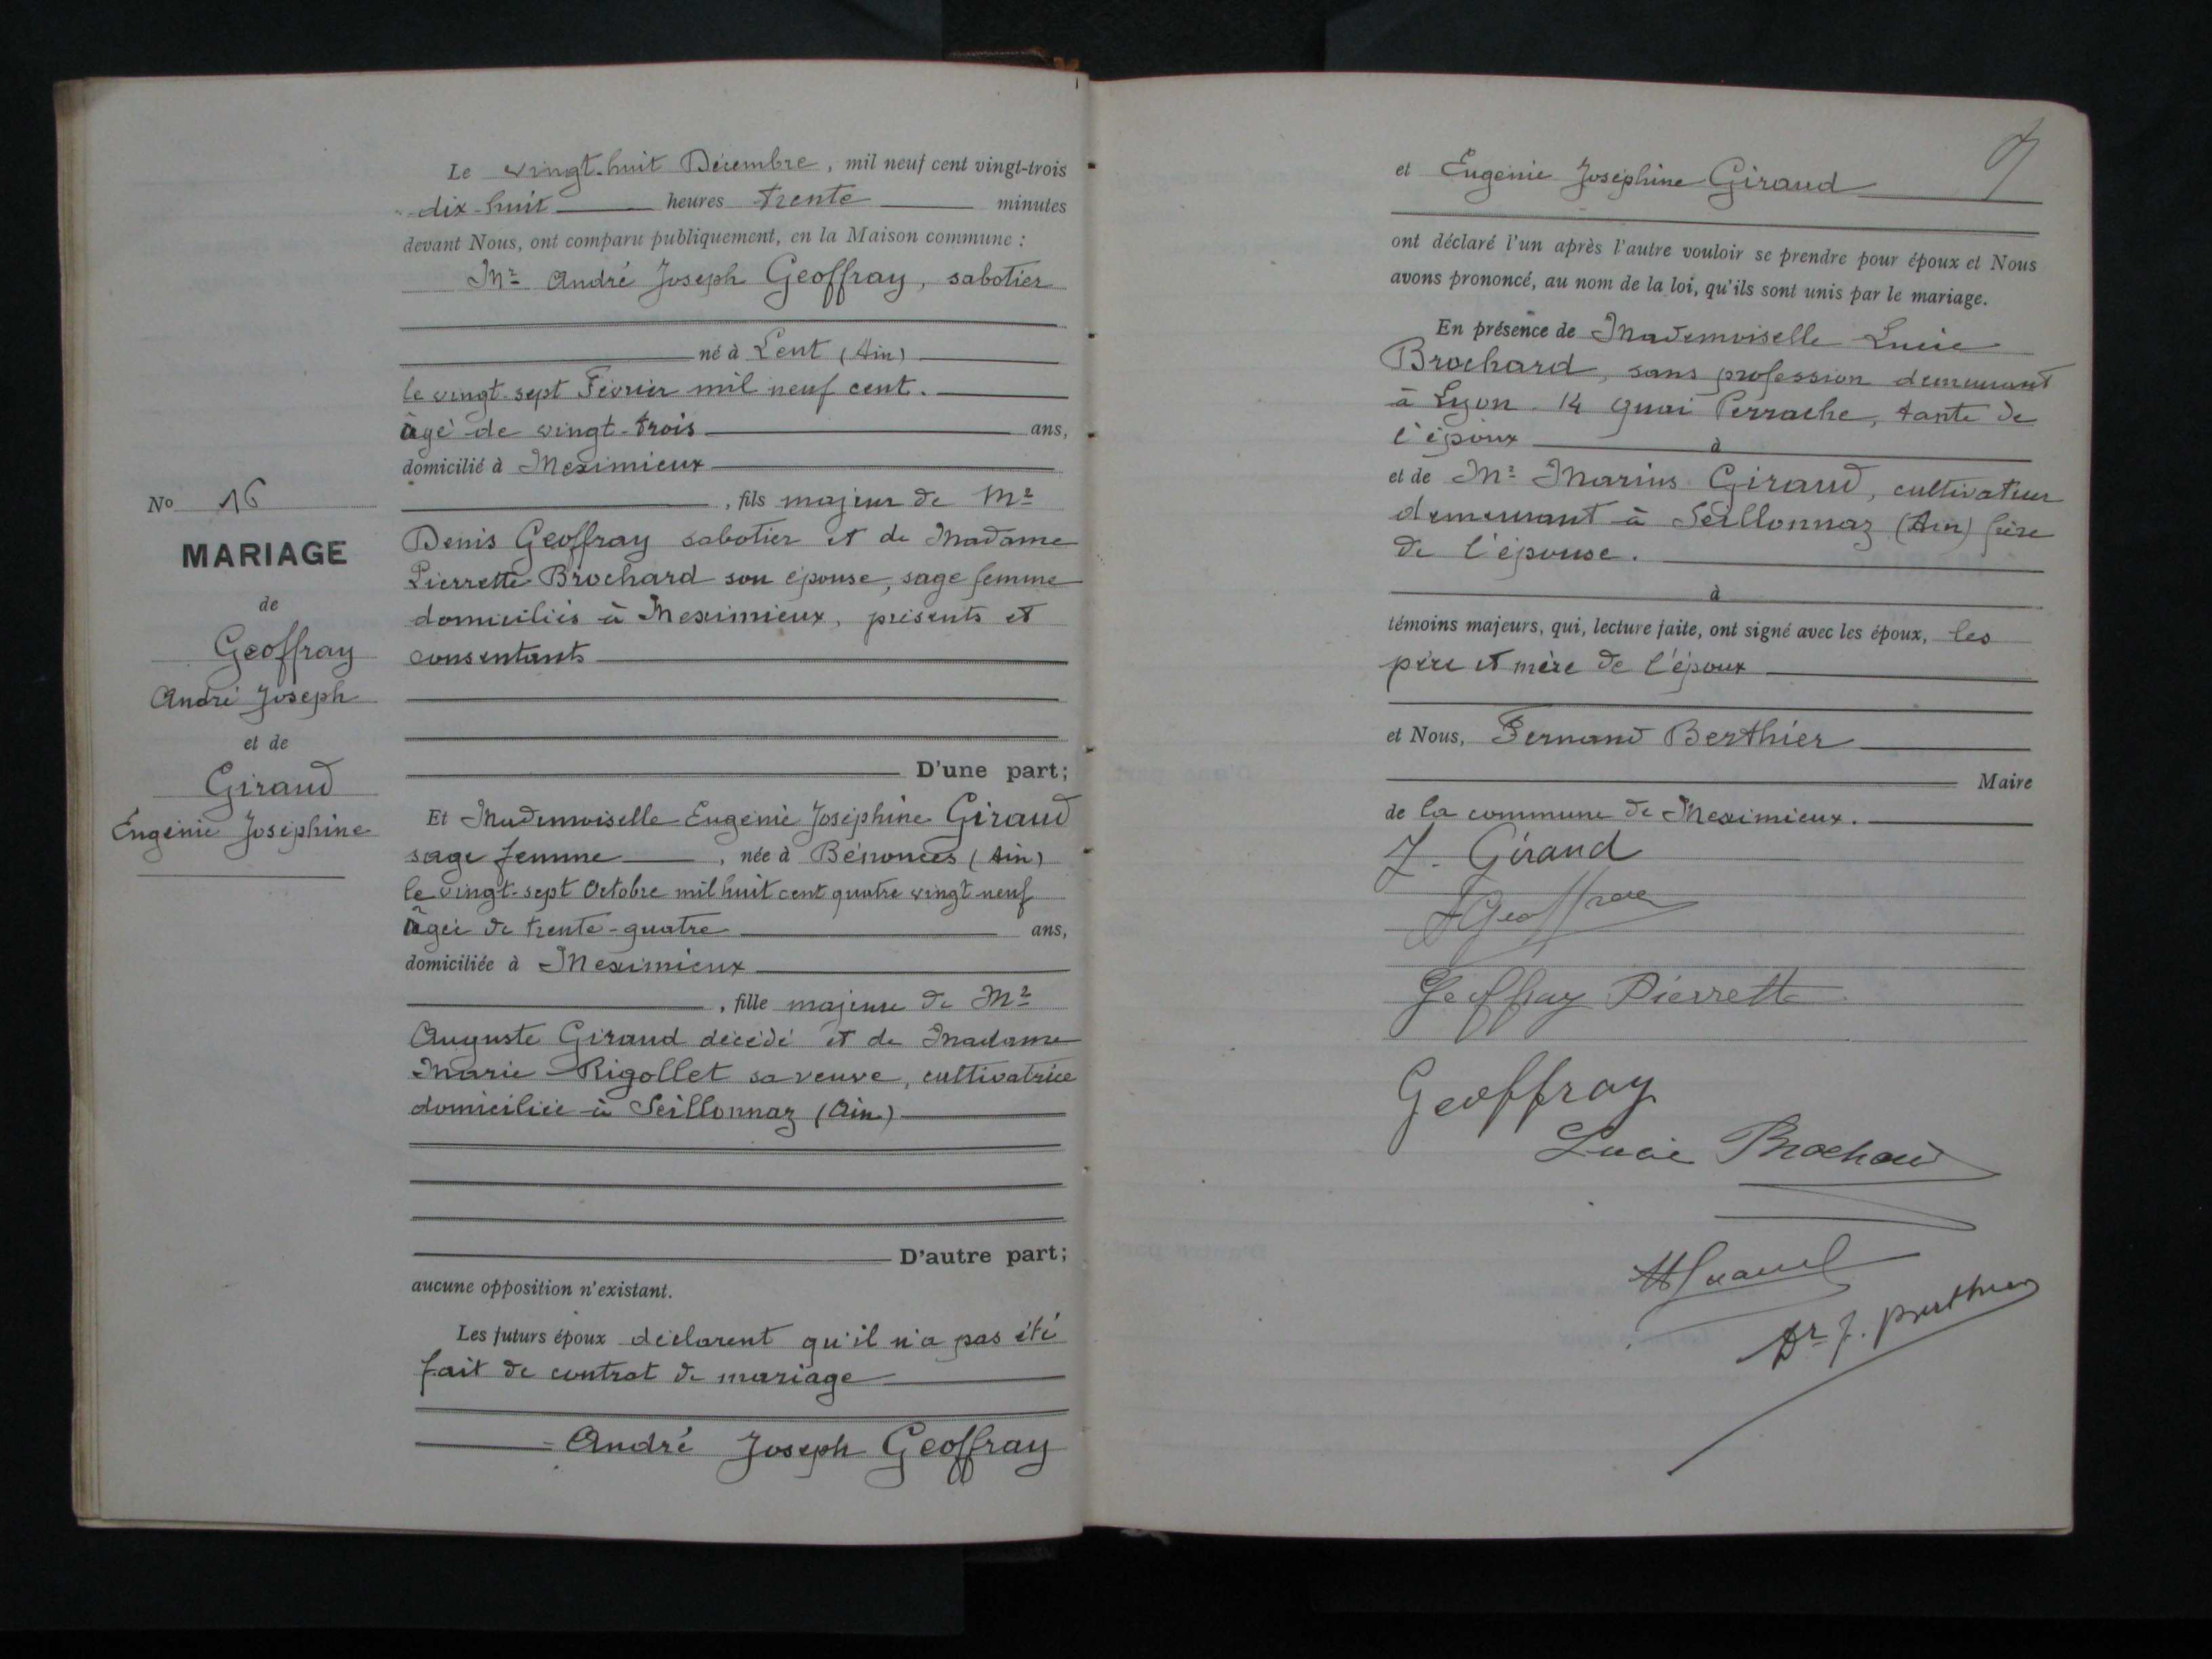 Le vingt-huit Décembre, mil neuf cent vingt-trois
dix-huit heures trente minutes
devant Nous, ont comparu publiquement, en la Maison commune :
Mr André Joseph Geoffray, sabotier
né à Lent (Ain)
le vingt-sept Février mil neuf cent.
âgé de vingt-trois ans,
domicilié à Meximieux
, fils majeur de Mr
Denis Geoffray sabotier et de Madame
Pierrette Brochard son épouse, sage femme
domiciliés à Meximieux, présents et
consentants
D'une part;
No 16
MARIAGE
de
Geoffray
André Joseph
et de
Giraud
Eugénie Joséphine
Et Mademoiselle Eugénie Joséphine Giraud
sage femme, née à Bénonces (Ain)
le vingt-sept Octobre mil huit cent quatre vingt neuf
âgée de trente-quatre ans,
domiciliée à Meximieux
, fille majeure de Mr
Auguste Giraud décédé et de Madame
Marie Rigollet sa veuve, cultivatrice
domiciliée à Seillonnaz (Ain)
D'autre part;
aucune opposition n'existant.
Les futurs époux déclarent qu'il n'a pas été
fait de contrat de mariage
André Joseph Geoffray
et Eugénie Joséphine Giraud
ont déclaré l'un après l'autre vouloir se prendre pour époux et Nous
avons prononcé, au nom de la loi, qu'ils sont unis par le mariage.
En présence de Mademoiselle Lucie
Brochard, sans profession demeurant
à Lyon 14 quai Perrache, tante de
l'époux à
et de Mr Marius Giraud, cultivateur
demeurant à Seillonnaz (Ain) frère
de l'épouse.
à
témoins majeurs, qui, lecture faite, ont signé avec les époux, les
père et mère de l'époux
et Nous, Fernand Berthier
Maire
de la commune de Meximieux.
J. Giraud
A Geoffray
Geoffray Pierrette
Geoffray
Lucie Brochard
Dr f. Berthier